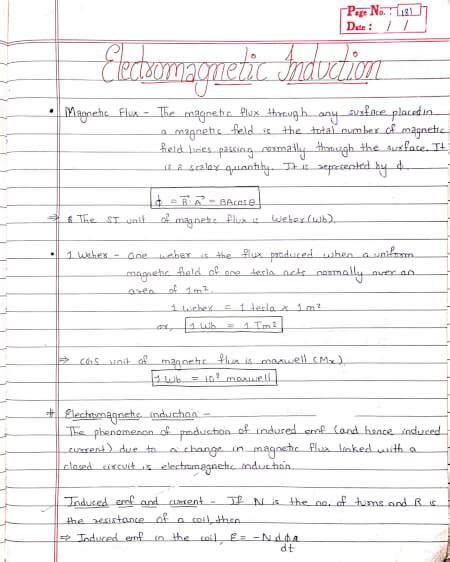 Page No.: 181
Date: / /
Electromagnetic Induction
• Magnetic Flux - The magnetic flux through any surface placed in
a magnetic field is the total number of magnetic
field lines passing normally through the surface. It
is a scalar quantity. It is represented by ϕ.
ϕ = B⃗.A⃗ = BA cosθ
⇒ The SI unit of magnetic flux is Weber (Wb).
• 1 Weber - One weber is the flux produced when a uniform
magnetic field of one tesla acts normally over an
area of 1m².
1 weber = 1 tesla × 1m²
or, 1 Wb = 1 Tm²
⇒ CGS unit of magnetic flux is maxwell (Mx)
1 Wb = 10⁸ maxwell
# Electromagnetic induction -
The phenomenon of production of induced emf (and hence induced
current) due to a change in magnetic flux linked with a
closed circuit is electromagnetic induction.
Induced emf and current - If N is the no. of turns and R is
the resistance of a coil, then
⇒ Induced emf in the coil, E = -N dϕ
dt